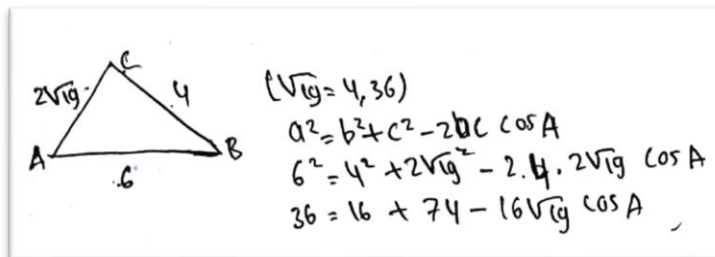 C
2√19
4
A
B
6
(√19 = 4,36)
a² = b² + c² - 2bc cos A
6² = 4² + 2√19² - 2.4.2√19 cos A
36 = 16 + 74 - 16√19 cos A